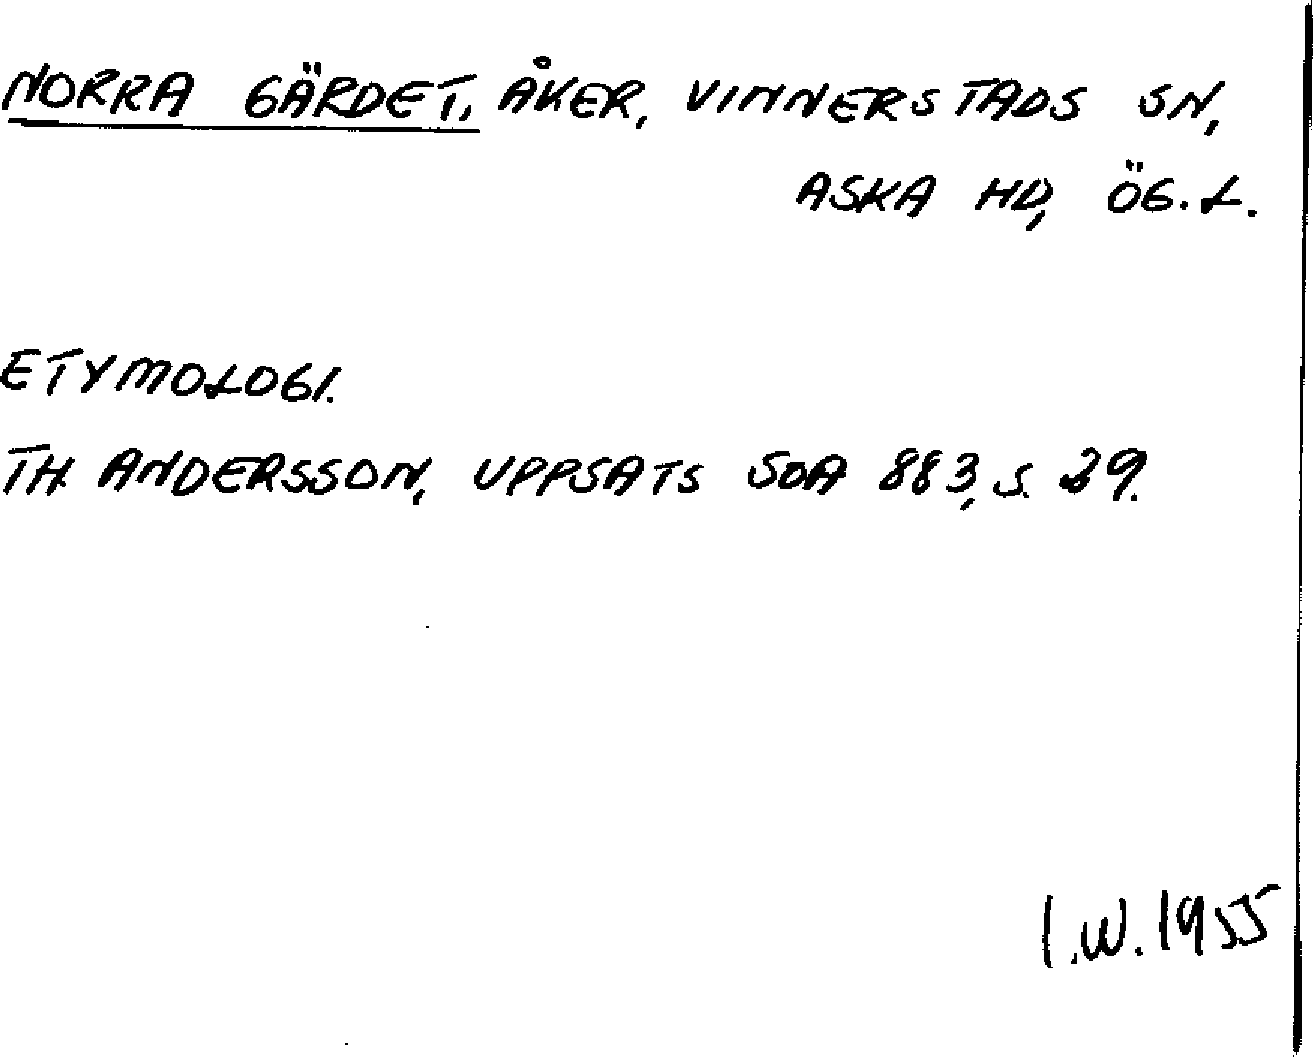 NORRA GÄRDET, ÅKER, VINNERSTADS SN,
ASKA HD, ÖG.L.
ETYMOLOGI.
TH. ANDERSSON, UPPSATS SOA 883, S. 29.
I.W. 1955